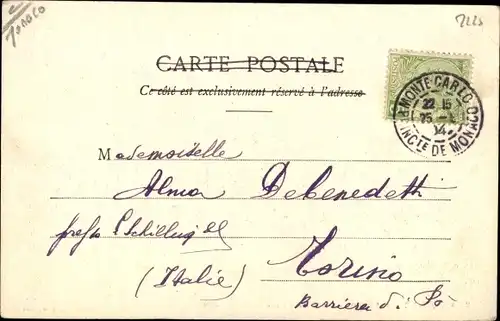 MONACO
2225
CARTE POSTALE
Ce côté est exclusivement réservé à l'adresse
MONTE-CARLO
22 15
25
04
PRINCTE DE MONACO
Mademoiselle
Alma Debenedetti
presso Schilling
(Italie)
Torino
Barriera di Pò